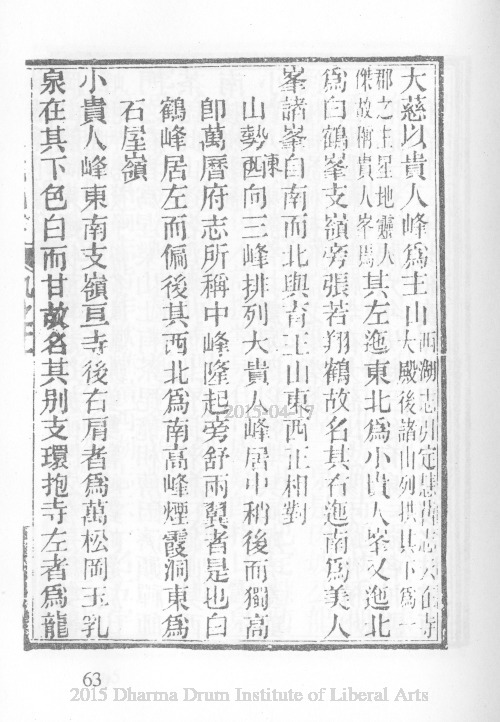 大慈以貴人峰爲主山西湖志引定慧舊志大慈寺大殿後諸山列拱其下爲一
郡之主星地靈人傑故稱貴人峯焉其左迤東北爲小貴人峯又迤北
爲白鶴峯支嶺旁張若翔鶴故名其右迤南爲美人
峯諸峯自南而北與育王山東西正相對
山勢東西向三峰排列大貴人峰居中稍後而獨高
卽萬曆府志所稱中峰隆起旁舒兩翼者是也白
鶴峰居左而偏後其西北爲南高峰煙霞洞東爲
石屋嶺
小貴人峰東南支嶺亘寺後右肩者爲萬松岡玉乳
泉在其下色白而甘故名其别支環抱寺左者爲龍
63
2015-04-17
2015 Dharma Drum Institute of Liberal Arts